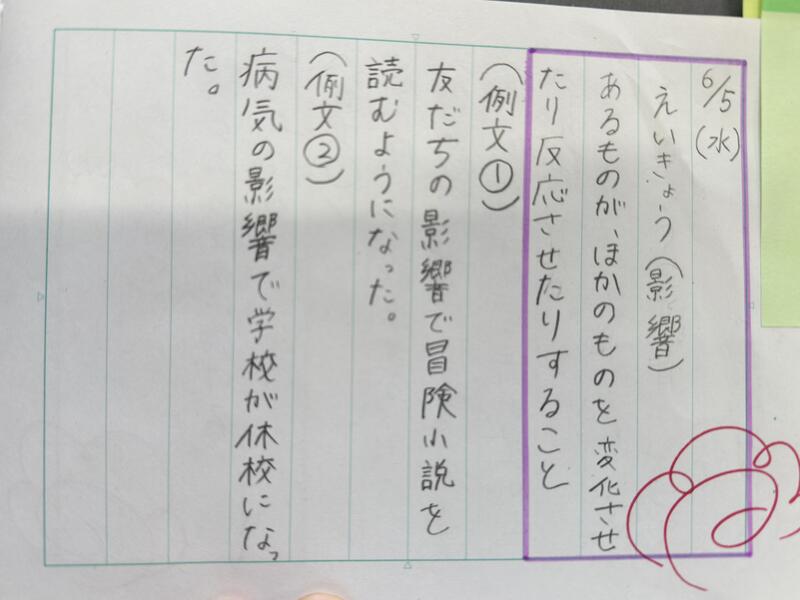 6/5(水)
えいきょう(影響)
あるものが、ほかのものを変化させ
たり反応させたりすること
(例文①)
友だちの影響で冒険小説を
読むようになった。
(例文②)
病気の影響で学校が休校になっ
た。